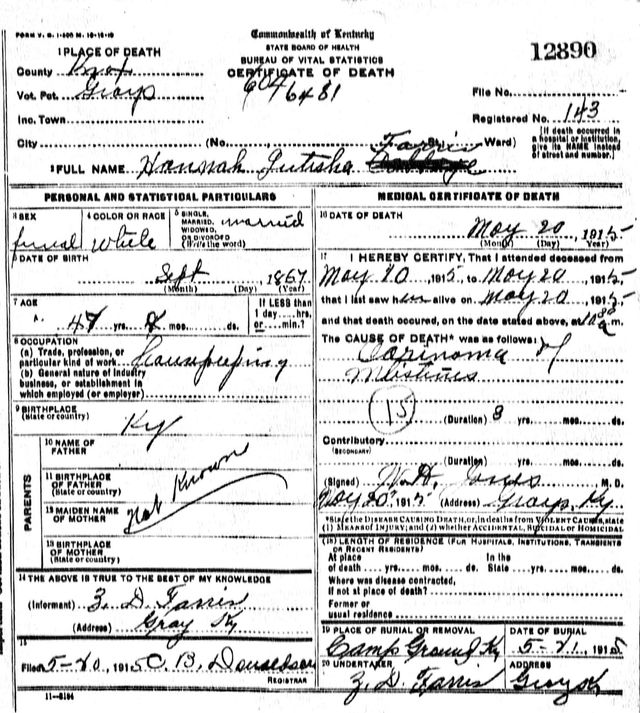 FORM V. S. 1-500 M. 10-18-10
Commonwealth of Kentucky
STATE BOARD OF HEALTH
BUREAU OF VITAL STATISTICS
CERTIFICATE OF DEATH
12890
1 PLACE OF DEATH
County Knox
Vot. Pct. Grays
46481
File No.
Inc. Town
Registered No. 143
City (No. Ward)
[If death occurred in a hospital or institution, give its NAME instead of street and number.]
Farris
2 FULL NAME Hannah Jutisha
PERSONAL AND STATISTICAL PARTICULARS
3 SEX femal
4 COLOR OR RACE White
5 SINGLE, MARRIED, WIDOWED, OR DIVORCED (Write the word) married
6 DATE OF BIRTH
Sept 1867
(Month) (Day) (Year)
7 AGE
47 yrs. 8 mos. ds.
If LESS than 1 day....hrs. or....min.?
8 OCCUPATION
(a) Trade, profession, or particular kind of work housekeeping
(b) General nature of industry business, or establishment in which employed (or employer)
9 BIRTHPLACE (State or country)
Ky
PARENTS
10 NAME OF FATHER
11 BIRTHPLACE OF FATHER (State or country)
12 MAIDEN NAME OF MOTHER
13 BIRTHPLACE OF MOTHER (State or country)
Not Known
14 THE ABOVE IS TRUE TO THE BEST OF MY KNOWLEDGE
(Informant) Z. D. Farris
(Address) Gray Ky
15
Filed 5-20, 1915 C. B. Donaldson
REGISTRAR
11-6184
MEDICAL CERTIFICATE OF DEATH
16 DATE OF DEATH
May 20, 1915
(Month) (Day) (Year)
17 I HEREBY CERTIFY, That I attended deceased from
May 20 1915, to May 20 1915
that I last saw her alive on May 20 1915
and that death occured, on the date stated above, at
The CAUSE OF DEATH* was as follows:
Carinoma of
15
(Duration) 3 yrs. mos. ds.
Contributory
(SECONDARY)
(Duration) yrs. mos. ds.
(Signed) W. H. Jones M. D.
May 20, 1915 (Address) Grays, Ky
*State the DISEASE CAUSING DEATH, or, in deaths from VIOLENT CAUSES, state (1) MEANS OF INJURY; and (2) whether ACCIDENTAL, SUICIDAL or HOMICIDAL
(18) LENGTH OF RESIDENCE (FOR HOSPITALS, INSTITUTIONS, TRANSIENTS OR RECENT RESIDENTS)
At place of death yrs. mos. ds. In the State yrs. mos. ds.
Where was disease contracted, if not at place of death?
Former or usual residence
19 PLACE OF BURIAL OR REMOVAL
Camp Ground Ky
DATE OF BURIAL
5-21, 1915
20 UNDERTAKER
Z. D. Farris
ADDRESS
Gray Ky